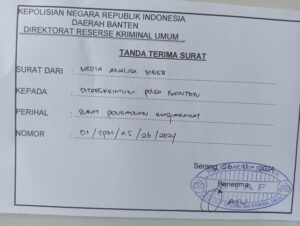 KEPOLISIAN NEGARA REPUBLIK INDONESIA
DAERAH BANTEN
DIREKTORAT RESERSE KRIMINAL UMUM
TANDA TERIMA SURAT
SURAT DARI : MEDIA ANALISA SIBER
KEPADA : DITRESKRIMUM POLDA BANTEN
PERIHAL : SURAT PENGADUAN MASYARAKAT
NOMOR : 01/SPM/AS/06/2024
Serang, 2024
Penerima